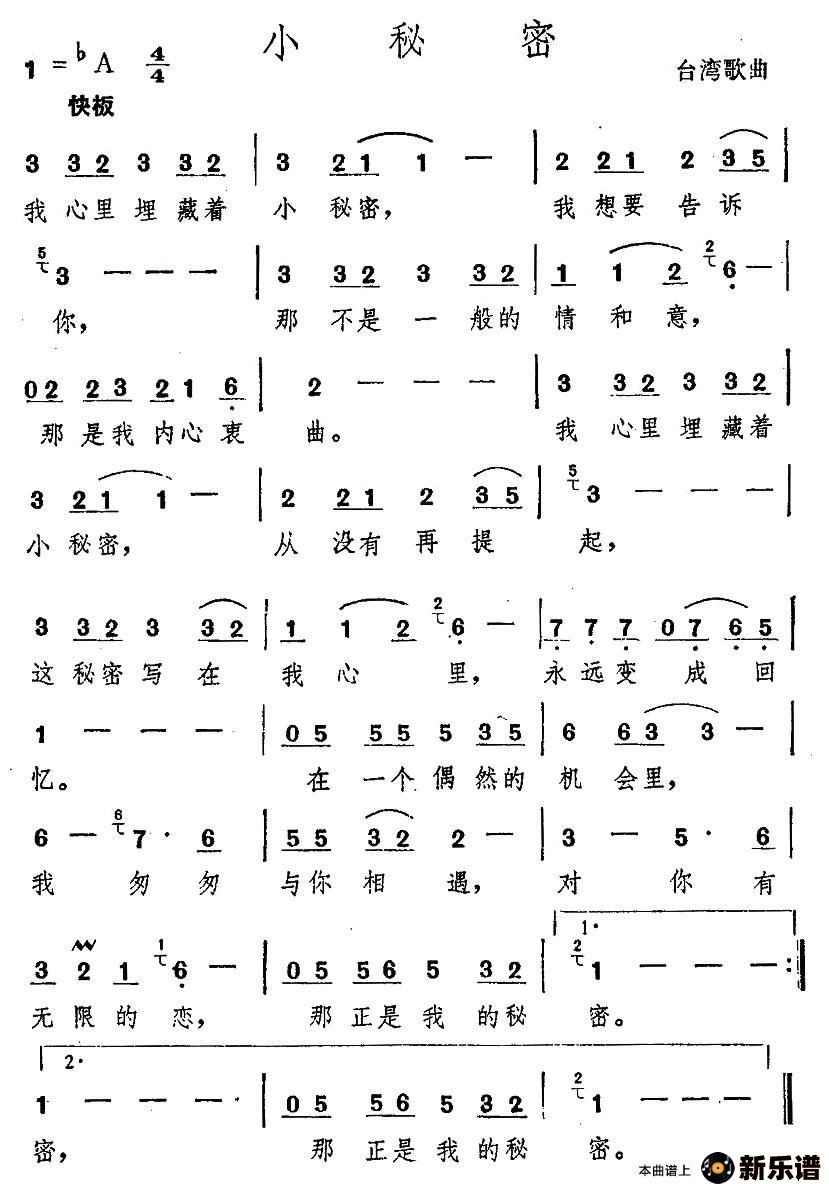 小秘密
1=♭A 4/4
台湾歌曲
快板
3 32 3 32 | 3 21 1 — | 2 21 2 35 |
我 心里 埋 藏着 小 秘密， 我 想要 告 诉
5 3 — — — | 3 32 3 32 | 1 1 2 2 6 — |
你， 那 不是 一 般的 情 和 意，
02 23 21 6 | 2 — — — | 3 32 3 32 |
那 是我 内心 衷 曲。 我 心里 埋 藏着
3 21 1 — | 2 21 2 35 | 5 3 — — — |
小 秘密， 从 没有 再 提 起，
3 32 3 32 | 1 1 2 2 6 — | 7 7 7 07 6 5 |
这 秘密 写 在 我 心 里， 永 远 变 成 回
1 — — — | 05 55 5 35 | 6 63 3 — |
忆。 在 一个 偶 然的 机 会里，
6 — 6 7· 6 | 55 32 2 — | 3 — 5· 6 |
我 匆 匆 与你 相 遇， 对 你 有
1.
3 2 1 1 6 — | 05 56 5 32 | 2 1 — — — :|
无 限 的 恋， 那 正是 我 的秘 密。
2.
1 — — — | 05 56 5 32 | 2 1 — — — ||
密， 那 正是 我 的秘 密。
本曲谱上 新乐谱